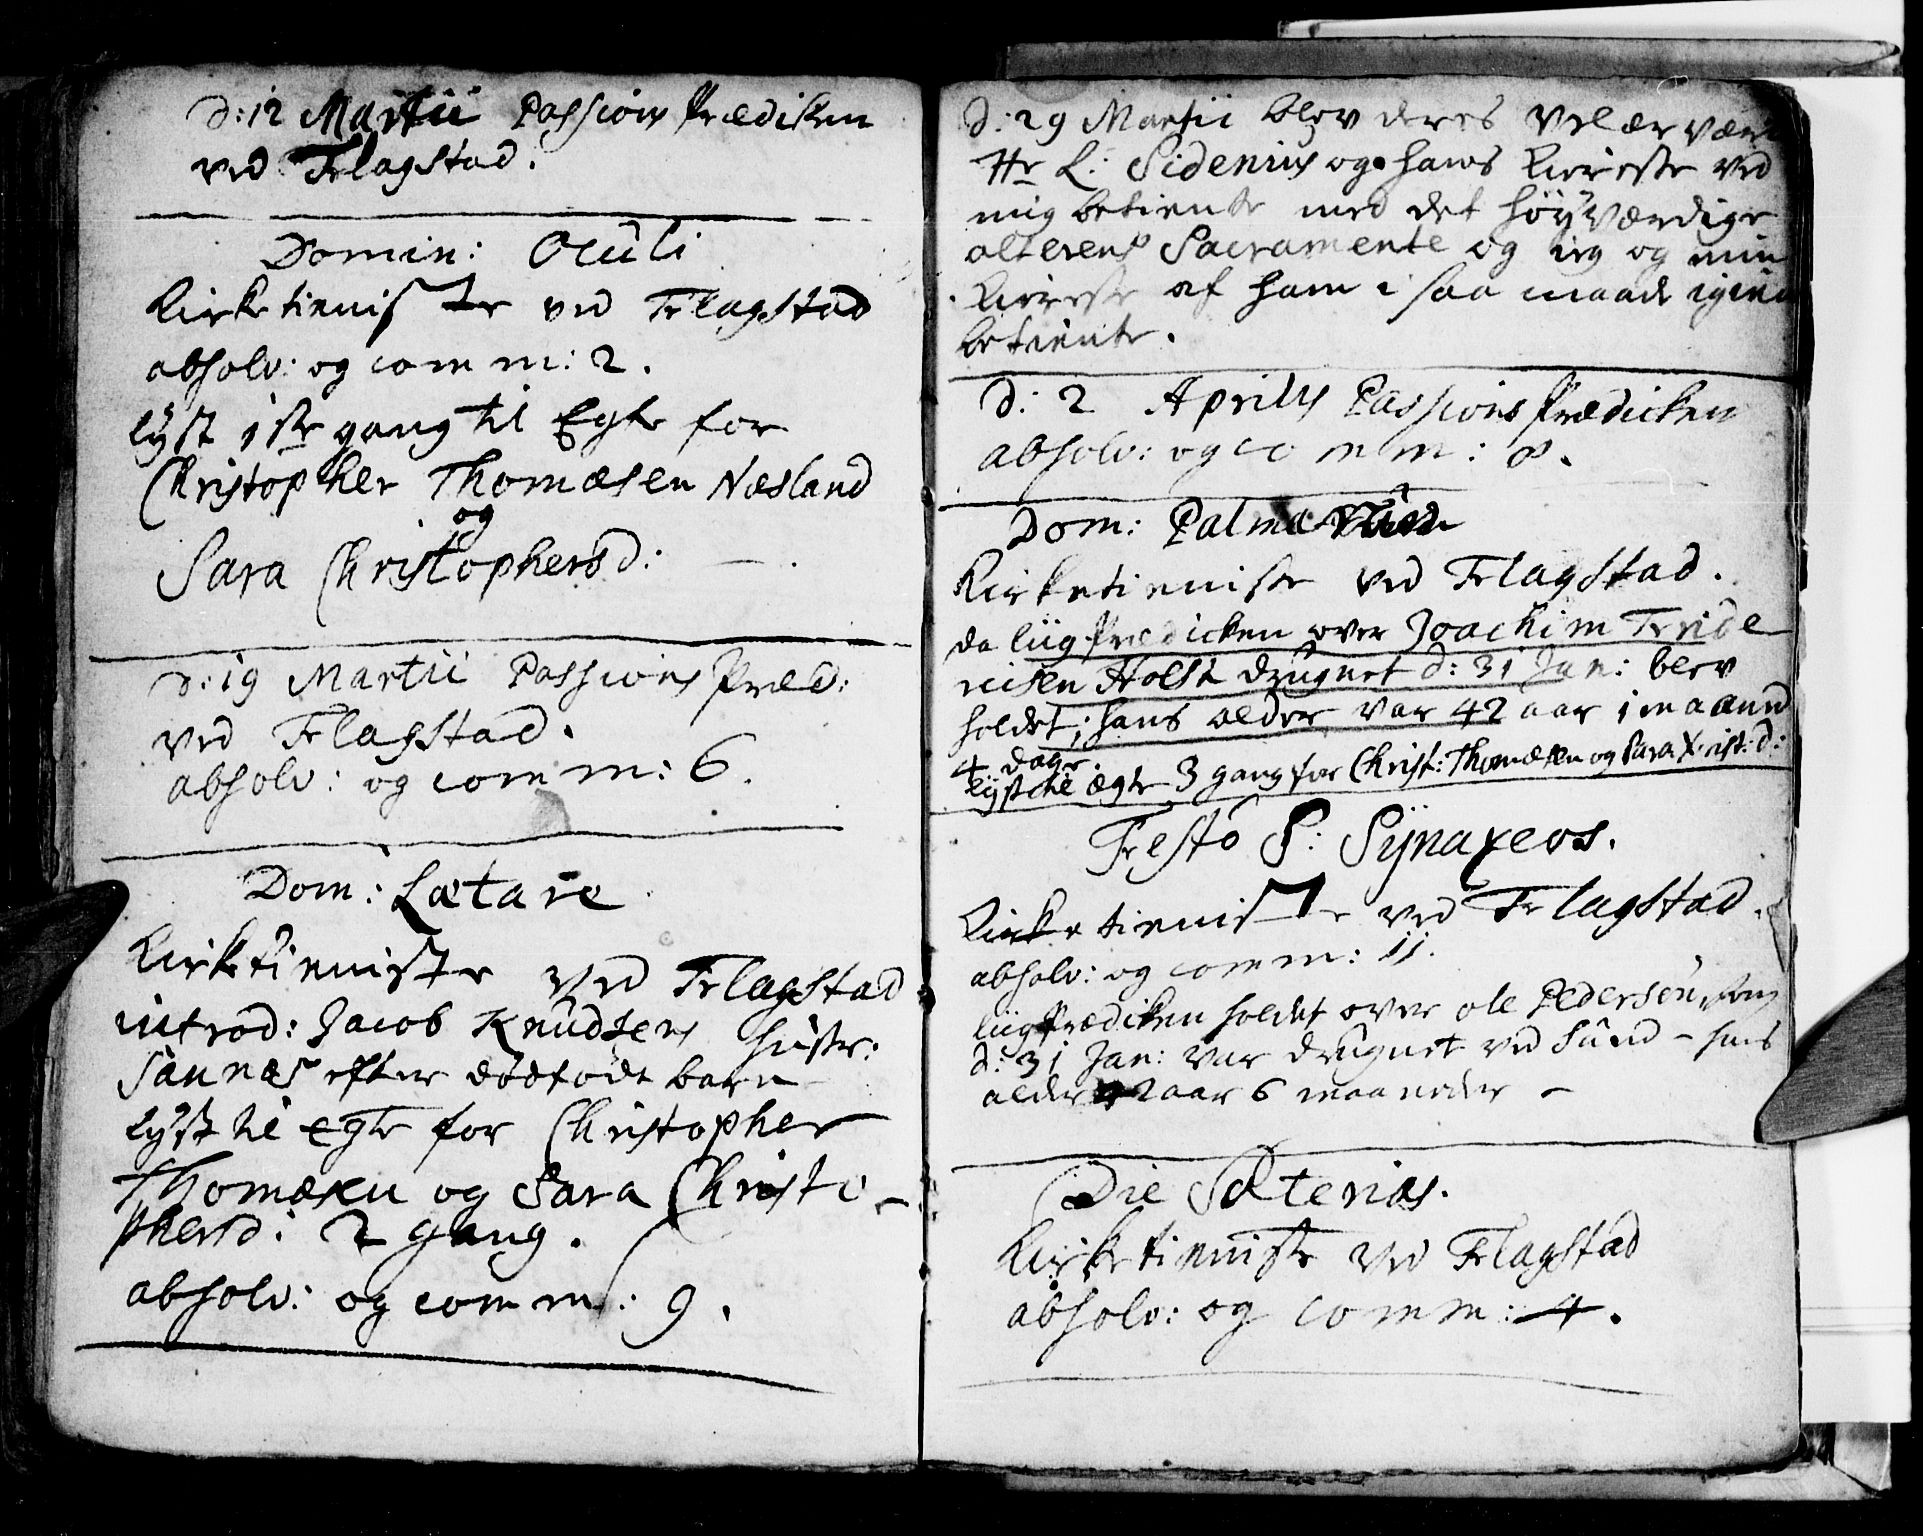 d: 12 Martii Passions Prædiken
ved Flagstad.
Domin: Oculi
Kirketieniste ved Flagstad
absolv: og comm: 2.
lyst 1ste gang til Egte for
Christopher Thomæsen Næsland
og
Sara Christophersd:
d: 19 Martii Passions Præd:
ved Flagstad.
absolv: og comm: 6.
Dom: Lætare
Kirketieniste ved Flagstad
introd: Jacob Knudsens hustr:
Sannæs efter dødfødt barn
lyst til egte for Christopher
Thomæsen og Sara Christo-
phersd: 2 gang.
absolv: og comm: 9.
d: 29 Martii blev deres Velærvær
Hr L: Sidenius og hans Kiereste ved
mig betiente med det høyværdige
alterens Sacramente og ieg og min
Kiereste af ham i saa maade igien
betiente.
d: 2 Aprilis Passions Prædicken
absolv: og comm: 8.
Dom: Palmarum
Kirketieniste ved Flagstad.
da liig Prædicken over Joachim Fride
richsen Holst drugnet d: 31 Jan: blev
holdet; hans alder var 42 aar 1 maaned
4 dage.
lyst til ægte 3 gang for Christ: Thomæsen og Sara Xrist:d:
Festo S: Synaxeos.
Kirketieniste ved Flagstad.
absolv: og comm: 11.
liig Prædiken holdet over ole Pedersen, som
d: 31 Jan: var drugnet ved Sund - hans
alder 2 aar 6 maaneder -
Die Soterias.
Kirketieniste ved Flagstad
absolv: og comm: 4.